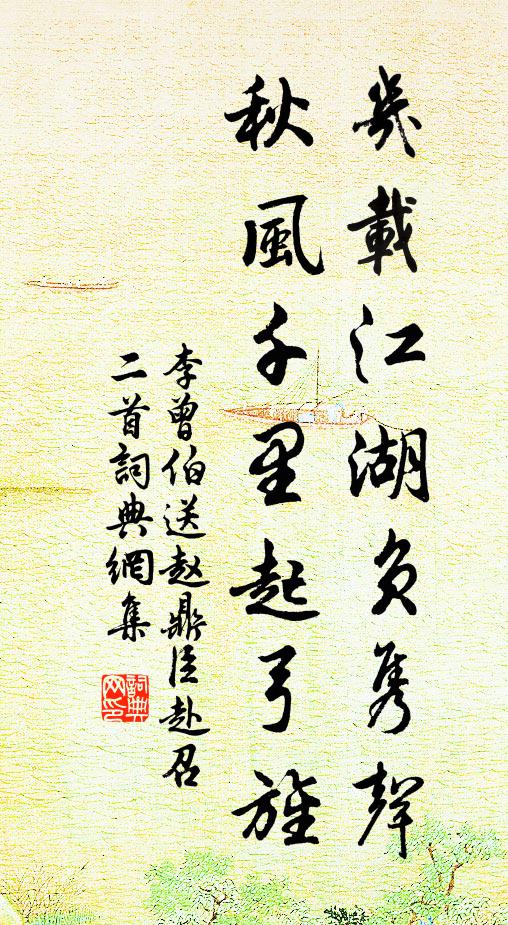 幾載江湖負雋聲
秋風千里起弓旌
李曾伯送赵鼎臣赴召
二首詞典網集
詞典
网印